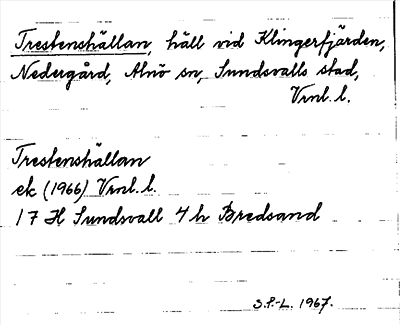 Trestenshällan, häll vid Klingerfjärden,
Nedergård, Alnö sn, Sundsvalls stad,
Vrnl. l.
Trestenshällan
ek (1966) Vrnl. l.
17 H Sundsvall 4 h Bredsand
S.P.-L. 1967.